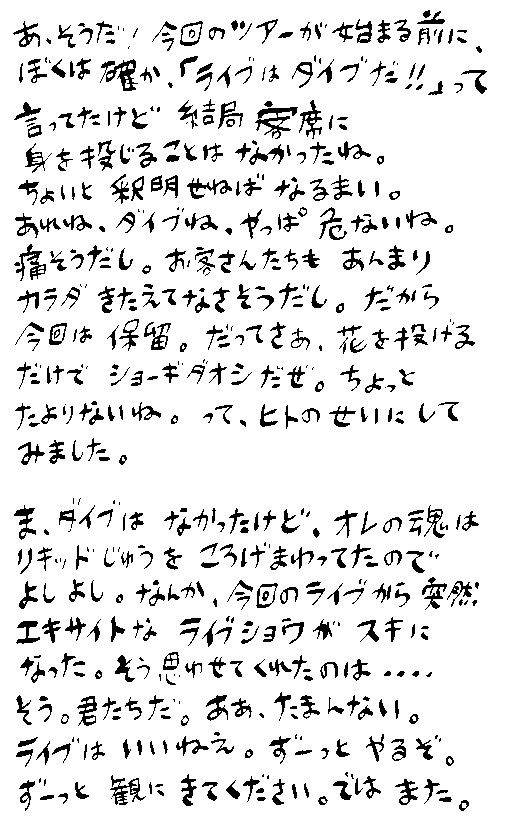 あ、そうだ！今回のツアーが始まる前に、
ぼくは確か、「ライブはダイブだ!!」って
言ってたけど 結局 客席に
身を投じることは なかったね。
ちょいと 釈明せねば なるまい。
あれね、ダイブね、やっぱ 危ないね。
痛そうだし。お客さんたちも あんまり
カラダ きたえてなさそうだし。だから
今回は 保留。だってさあ、花を投げる
だけで ショーギダオシだぜ。ちょっと
たよりないね。って、ヒトのせいにして
みました。
ま、ダイブは なかったけど、オレの魂は
リキッドじゅうを ころげまわってたので
よしよし。なんか、今回のライブから 突然
エキサイトな ライブショウが スキに
なった。そう思わせてくれたのは・・・・
そう。君たちだ。ああ、たまんない。
ライブは いいねえ。ずーっと やるぞ。
ずーっと 観に きてください。では また。